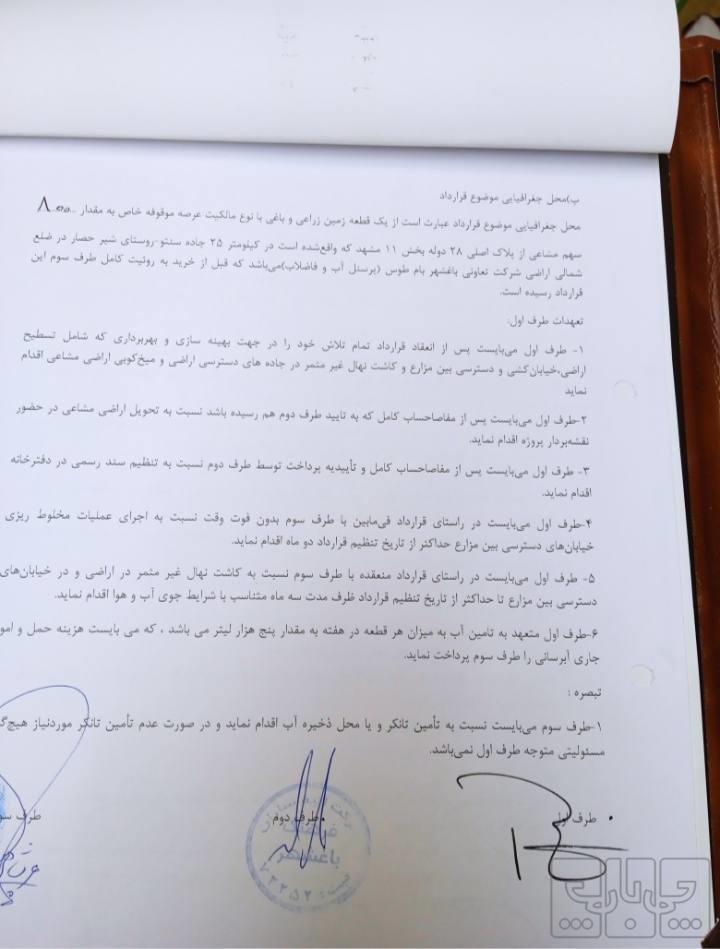 ب)محل جغرافیایی موضوع قرارداد
محل جغرافیایی موضوع قرارداد عبارت است از یک قطعه زمین زراعی و باغی با نوع مالکیت عرصه موقوفه خاص به مقدار
سهم مشاعی از پلاک اصلی ۲۸ دوله بخش ۱۱ مشهد که واقع‌شده است در کیلومتر ۲۵ جاده سنتو-روستای شیر حصار در ضلع
شمالی اراضی شرکت تعاونی باغشهر بام طوس (پرسنل آب و فاضلاب)می‌باشد که قبل از خرید به روئیت کامل طرف سوم این
قرارداد رسیده است.
تعهدات طرف اول:
۱- طرف اول می‌بایست پس از انعقاد قرارداد تمام تلاش خود را در جهت بهینه سازی و بهربرداری که شامل تسطیح
اراضی،خیابان‌کشی و دسترسی بین مزارع و کاشت نهال غیر مثمر در جاده های دسترسی اراضی و میخ‌کوبی اراضی مشاعی اقدام
نماید
۲-طرف اول می‌بایست پس از مفاصاحساب کامل که به تایید طرف دوم هم رسیده باشد نسبت به تحویل اراضی مشاعی در حضور
نقشه‌بردار پروژه اقدام نماید.
۳- طرف اول می‌بایست پس از مفاصاحساب کامل و تأییدیه پرداخت توسط طرف دوم نسبت به تنظیم سند رسمی در دفترخانه
اقدام نماید.
۴-طرف اول می‌بایست در راستای قرارداد فی‌مابین با طرف سوم بدون فوت وقت نسبت به اجرای عملیات مخلوط ریزی
خیابان‌های دسترسی بین مزارع حداکثر از تاریخ تنظیم قرارداد دو ماه اقدام نماید.
۵- طرف اول می‌بایست در راستای قرارداد منعقده با طرف سوم نسبت به کاشت نهال غیر مثمر در اراضی و در خیابان‌های
دسترسی بین مزارع تا حداکثر از تاریخ تنظیم قرارداد ظرف مدت سه ماه متناسب با شرایط جوی آب و هوا اقدام نماید.
۶-طرف اول متعهد به تامین آب به میزان هر قطعه در هفته به مقدار پنج هزار لیتر می باشد ، که می بایست هزینه حمل و امو
جاری آبرسانی را طرف سوم پرداخت نماید.
تبصره :
۱-طرف سوم می‌بایست نسبت به تأمین تانکر و یا محل ذخیره آب اقدام نماید و در صورت عدم تأمین تانکر موردنیاز هیچ‌گ
مسئولیتی متوجه طرف اول نمی‌باشد.
• طرف اول
طرف دوم
طرف سو
باغشهر
ثبت: ۷۲۲۵۲